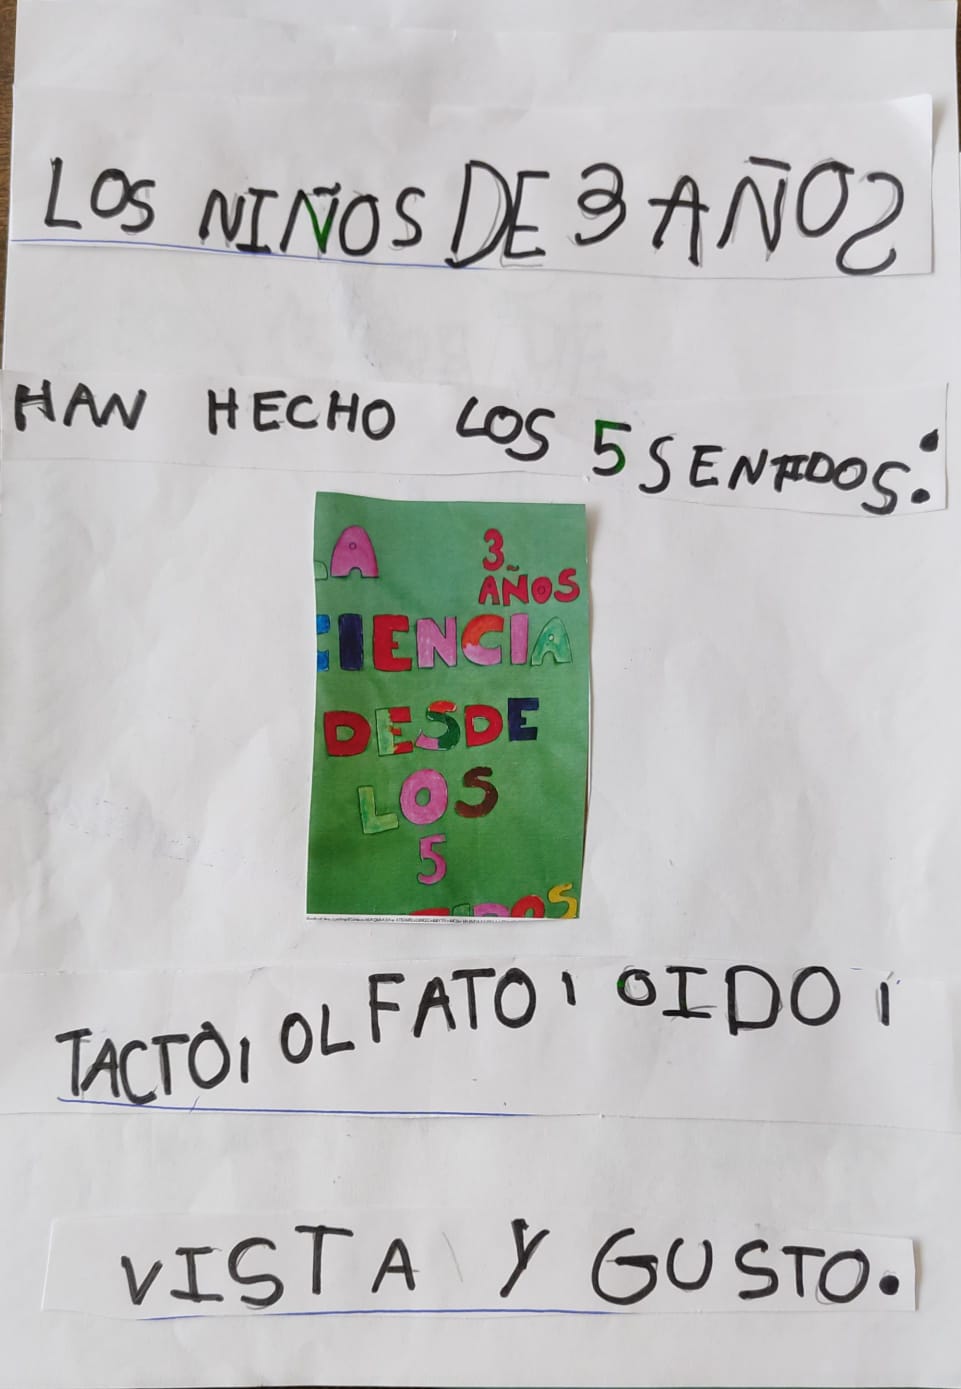 LOS NIÑOS DE 3 AÑOS
HAN HECHO LOS 5 SENTIDOS:
LA
3
AÑOS
CIENCIA
DESDE
LOS
5
TACTO, OLFATO, OIDO,
VISTA Y GUSTO.